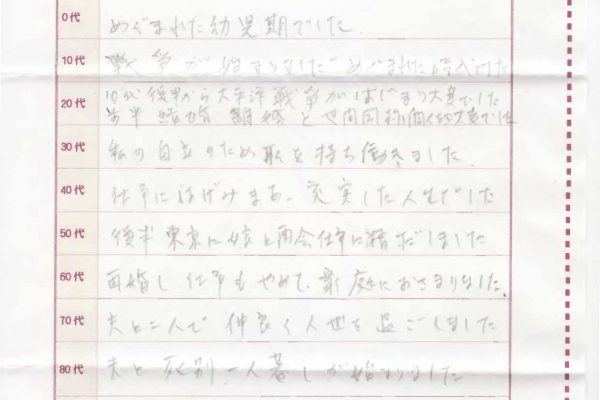 0代
めぐまれた幼児期でした.
10代
戦争が始まりましたがめぐまれた時代でした
20代
10代後半から太平洋戦争がはじまり大変でした
前半結婚離婚と世間同様個人的大変でした
30代
私の自立のため職を持ち働きました.
40代
仕事にはげみまあ、充実した人生でした
50代
後半東京に女と再会仕事に精だしました
60代
再婚し仕事もやめて、家庭におさまりました、
70代
夫と二人で仲良く人世を過ごしました
80代
夫と死別、一人暮しが始まりました